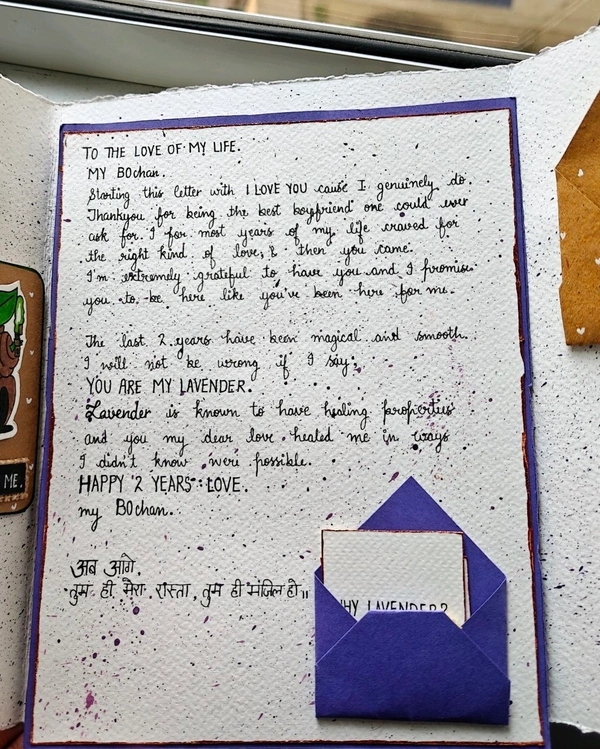 TO THE LOVE OF MY LIFE.
MY BOchan.
Starting this letter with I LOVE YOU cause I genuinely do.
Thankyou for being the best boyfriend one could ever
ask for. I for most years of my life craved for
the right kind of love, & then you came.
I'm extremely grateful to have you and I promise
you to be here like you've been here for me.
The last 2 years have been magical and smooth.
I will not be wrong if I say,
YOU ARE MY LAVENDER.
Lavender is known to have healing properties
and you my dear love healed me in ways
I didn't know were possible.
HAPPY 2 YEARS LOVE.
my BOchan.
अब आगे,
तुम ही मेरा रास्ता, तुम ही मंज़िल हो॥
WHY LAVENDER?
ME.